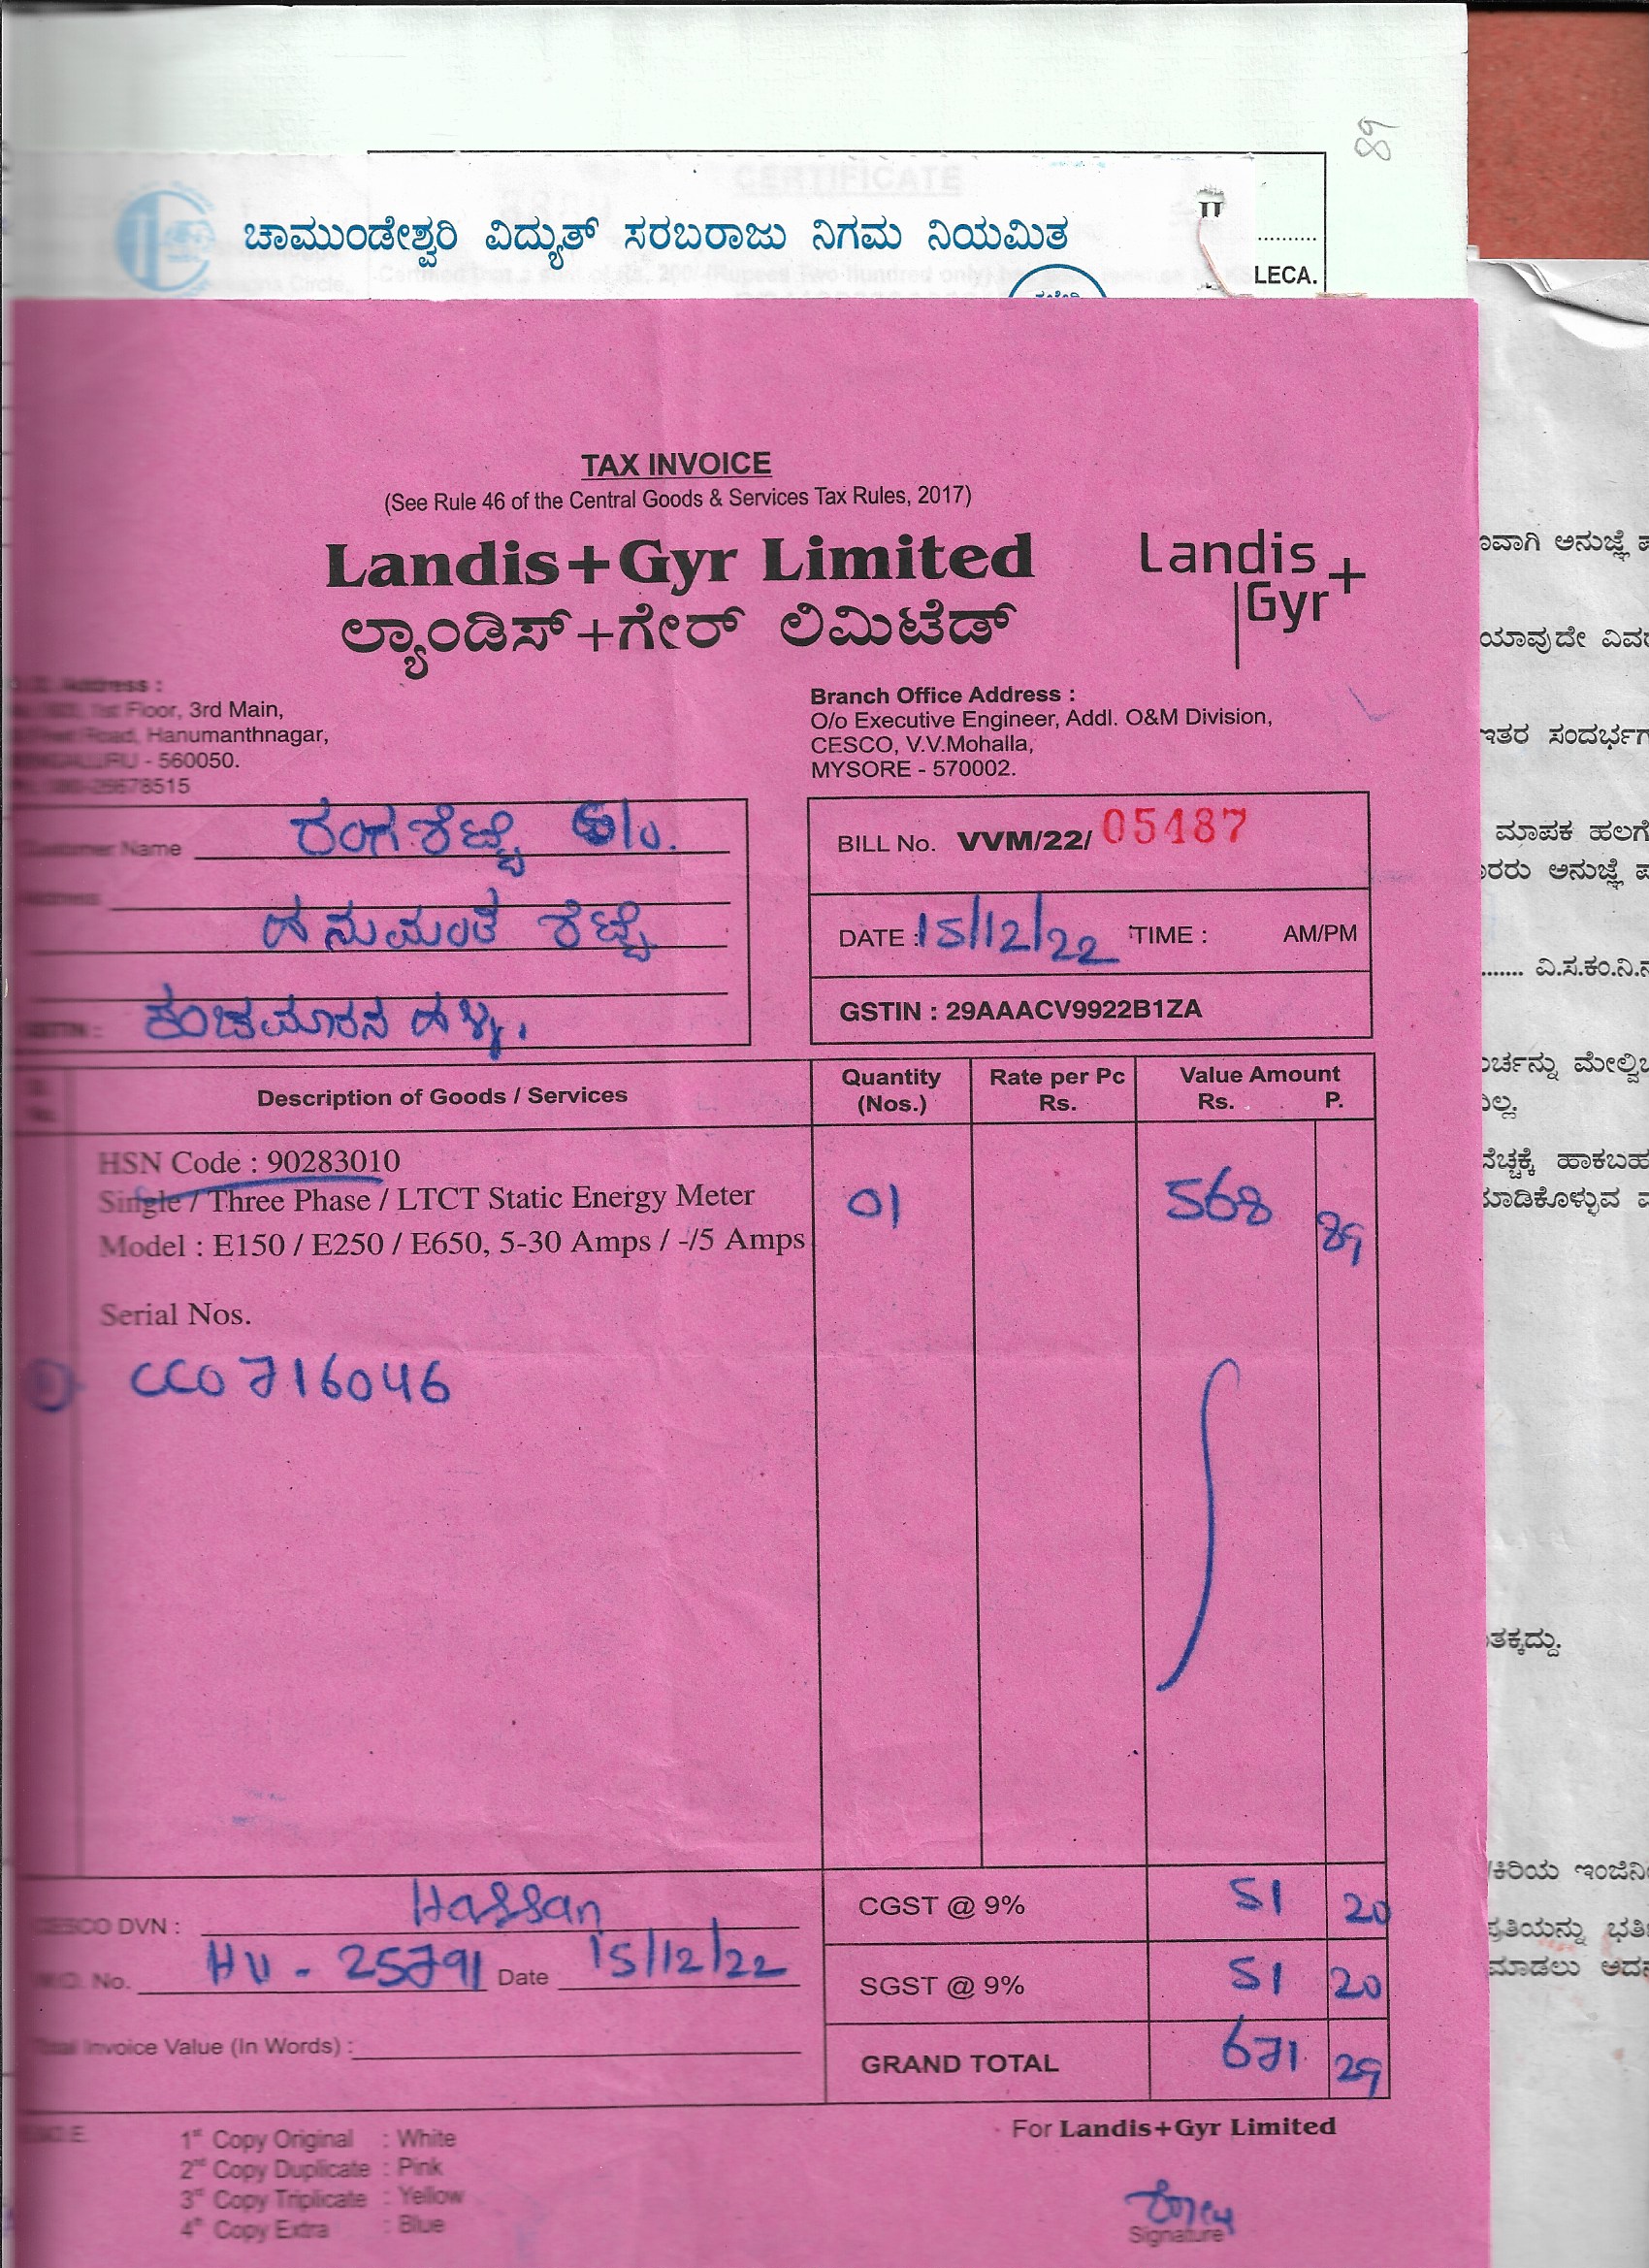 89
CERTIFICATE
ಚಾಮುಂಡೇಶ್ವರಿ ವಿದ್ಯುತ್ ಸರಬರಾಜು ನಿಗಮ ನಿಯಮಿತ
LECA.
TAX INVOICE
(See Rule 46 of the Central Goods & Services Tax Rules, 2017)
Landis+Gyr Limited
Landis+
Gyr
ಲ್ಯಾಂಡಿಸ್+ಗೇರ್ ಲಿಮಿಟೆಡ್
Address :
1st Floor, 3rd Main,
Road, Hanumanthnagar,
BENGALURU - 560050.
26678515
Branch Office Address :
O/o Executive Engineer, Addl. O&M Division,
CESCO, V.V.Mohalla,
MYSORE - 570002.
Customer Name ರಂಗಶೆಟ್ಟಿ S/o.
Address
ಹನುಮಂತ ಶೆಟ್ಟಿ
GSTIN : ಕಂಚಮಾರನ ಹಳ್ಳಿ.
BILL No. VVM/22/ 05487
DATE : 15/12/22 TIME : AM/PM
GSTIN : 29AAACV9922B1ZA
Sl. No. Description of Goods / Services Quantity (Nos.) Rate per Pc Rs. Value Amount Rs. P.
HSN Code : 90283010
Single / Three Phase / LTCT Static Energy Meter 01 568 89
Model : E150 / E250 / E650, 5-30 Amps / -/5 Amps
Serial Nos.
1) CCO716046
CESCO DVN : Hassan
CGST @ 9% 51 20
W.O. No. HU - 25791 Date 15/12/22
SGST @ 9% 51 20
Total Invoice Value (In Words) :
GRAND TOTAL 671 29
NOTE
1st Copy Original : White
2nd Copy Duplicate : Pink
3rd Copy Triplicate : Yellow
4th Copy Extra : Blue
For Landis+Gyr Limited
Signature
ಅನುಜ್ಞೆ
ಯಾವುದೇ
ಇತರ
ಮಾಪಕ ಹಲಗೆ
ಅನುಜ್ಞೆ
ವಿ.ಸ.ಕಂ.ನಿ.ನ
ಹಾಕಬಹ
ಮಾಡಿಕೊಳ್ಳುವ
/ಕಿರಿಯ
ಪ್ರತಿಯನ್ನು
ಮಾಡಲು